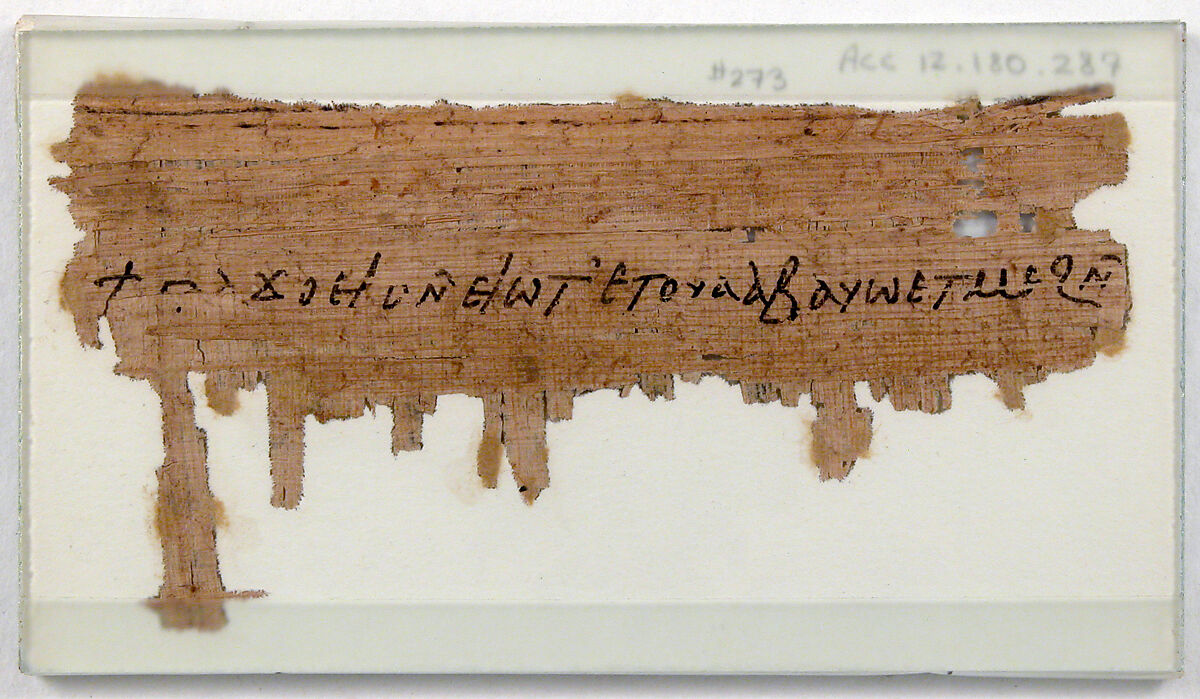 #273 Acc 12.180.287
† ⲡⲁϫⲟⲉⲓⲥ ⲛ̄ⲉⲓⲱⲧ ⲉⲧⲟⲩⲁⲁⲃ ⲁⲩⲱ ⲉⲧⲙⲉϩ ⲛ̄